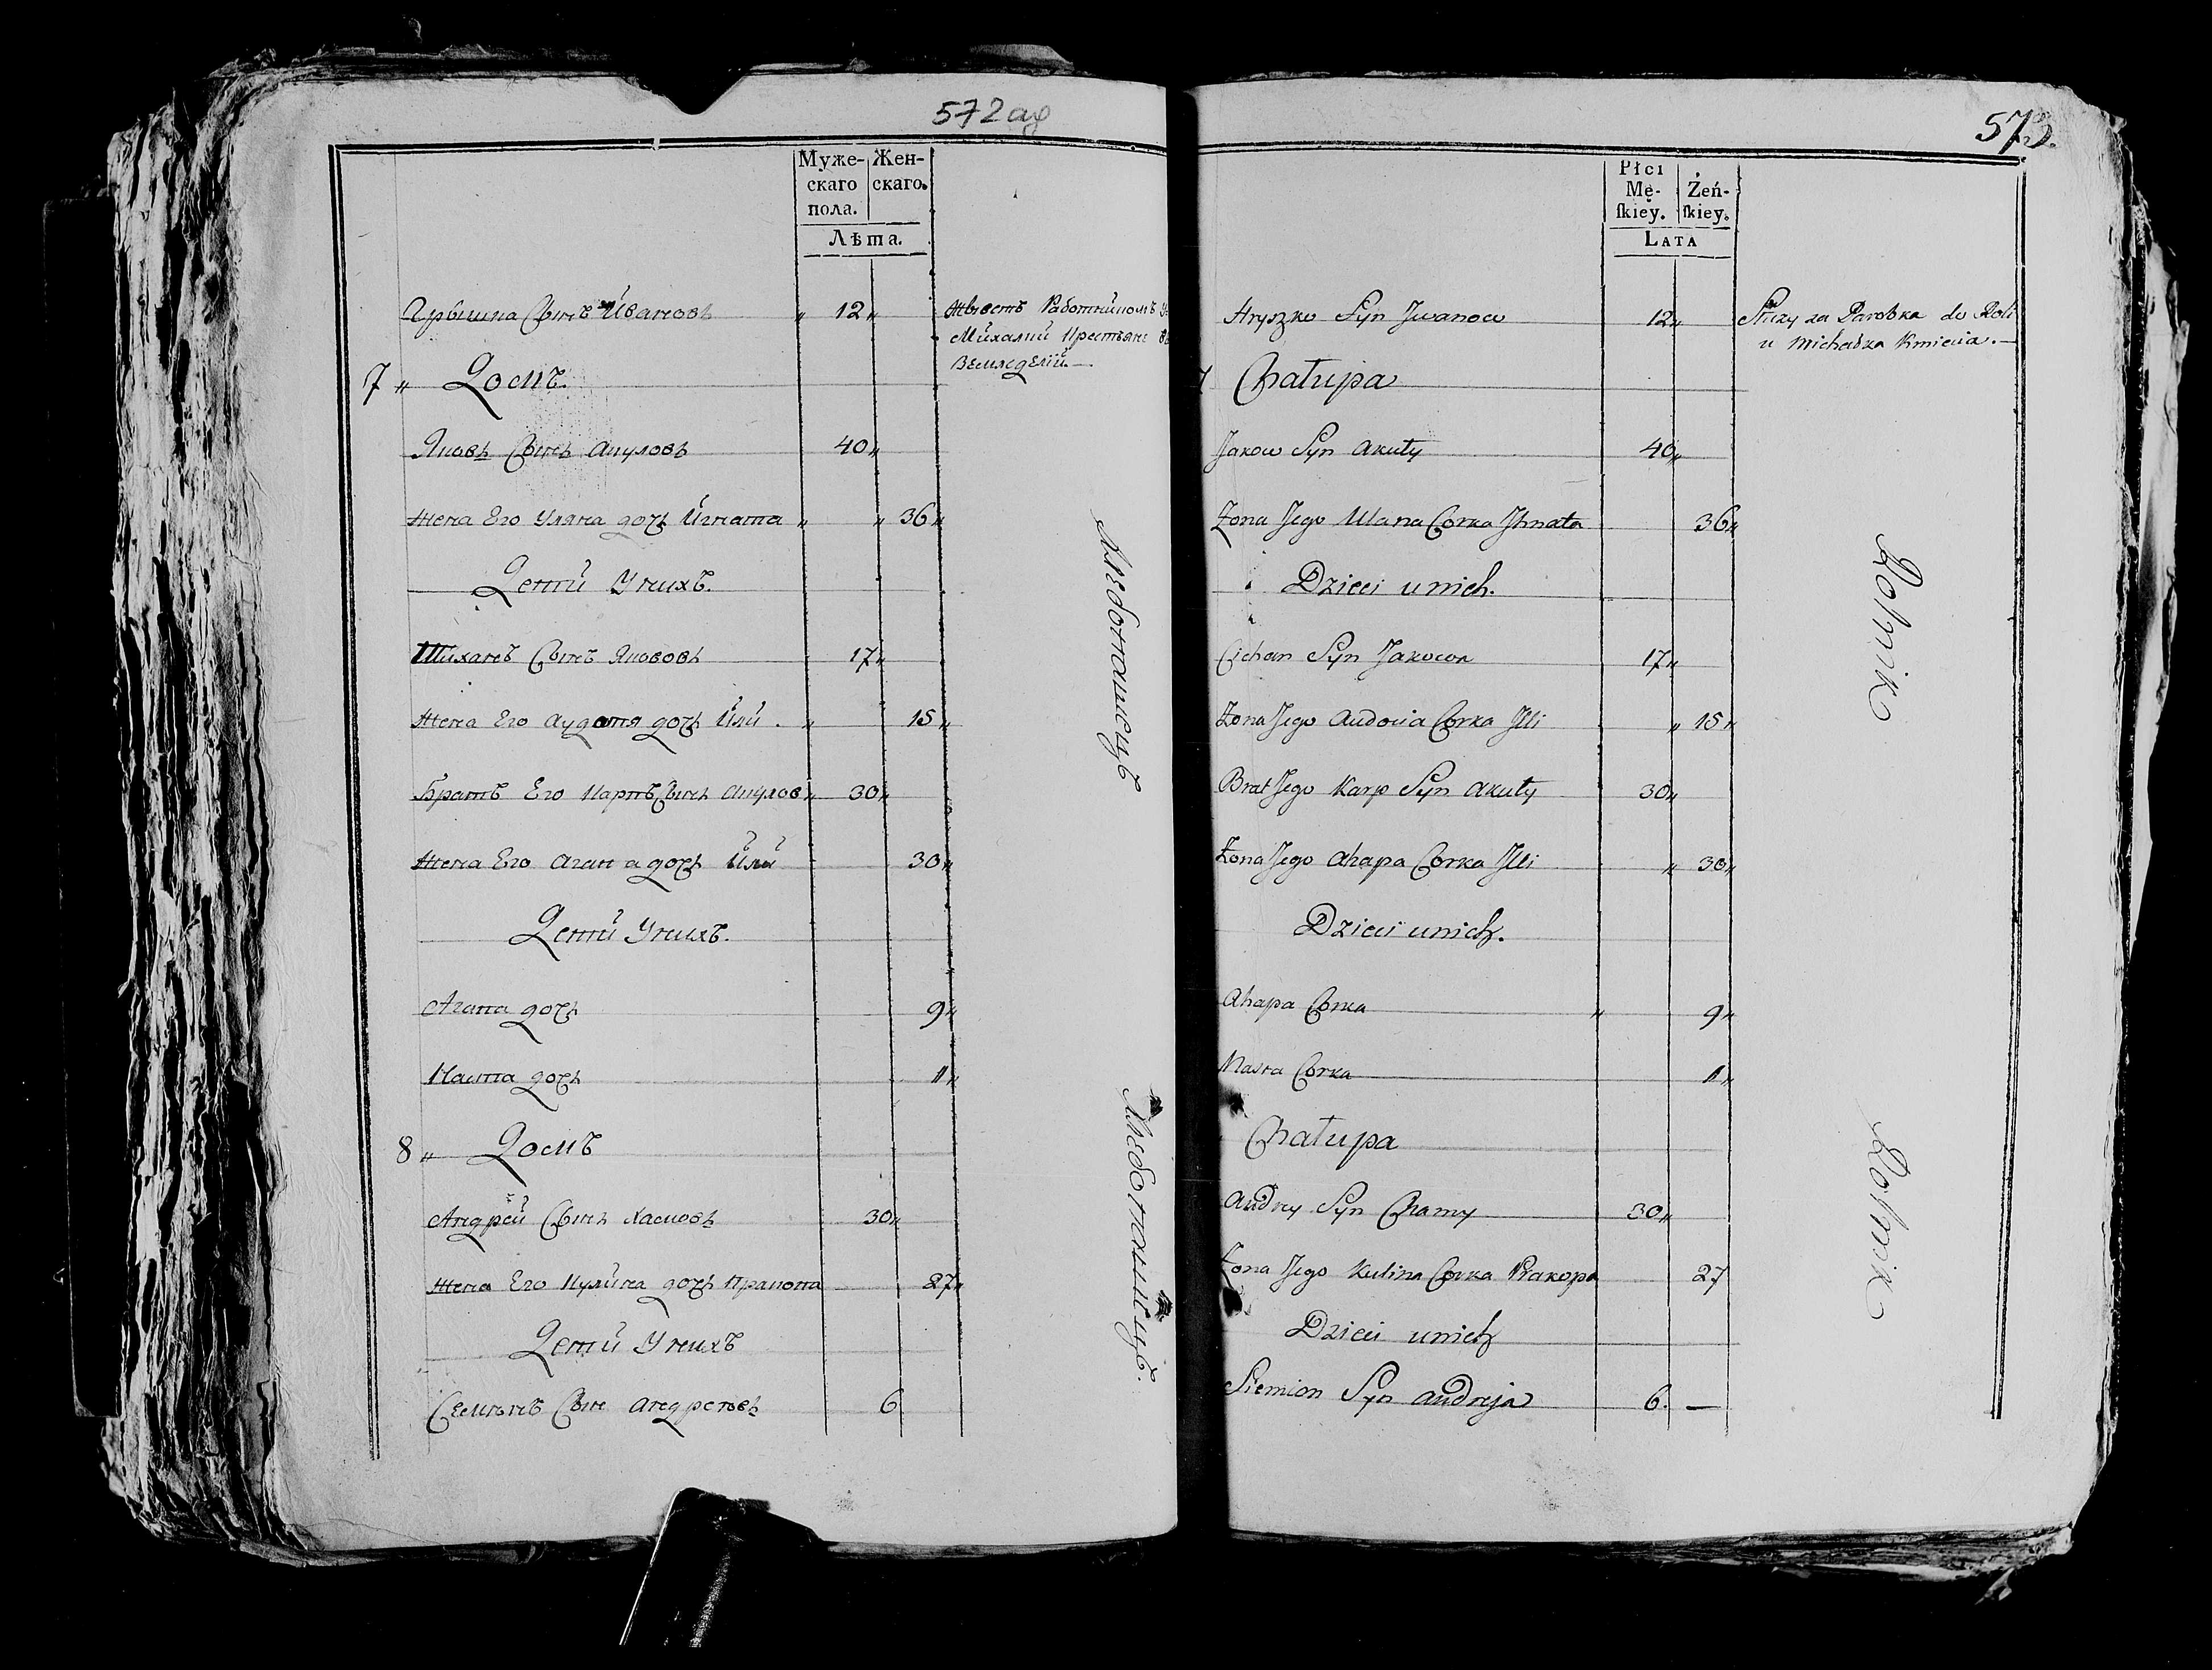 572 аф
Муже- Жен-
скаго скаго.
пола.
Лѣта.
Грышка Сынъ Ивановъ " 12 "
Живетъ Работникомъ у
Михалки Крестьяне
Вемледелій.
7 " Домъ.
Яковъ Сынъ Акуловъ 40 "
Жена Его Уляна дочь Игната " " 36 "
Дети У нихъ.
Тиханъ Сынъ Яковъ 17 "
Жена Его Аудотя дочь Или . " 15 "
Братъ Его Карпъ Сынъ Акулов " 30 "
Жена Его Агапа дочь Или 30 "
Дети У нихъ.
Агапа дочь 9 "
Наста дочь 1 "
8 " Домъ
Андрей Сынъ Хамовъ 30 "
Жена Его Кулина дочь Пракопа 27 "
Дети У нихъ
Семѣнъ Сынъ Андреевъ 6
Хлебопашецъ
Хлебопашецъ.
573.
Płci
Mę- Żeń-
ſkiey. ſkiey.
LATA
Hryszko Syn Jwanow 12 "
Służy za Parobka do Roli
u Michałka Kmiecia. —
7 Chałupa
Jakow Syn Akuły 40 "
Żona Jego Ulana Corka Jhnata 36 "
Dzieci u nich.
Cichan Syn Jakowa 17 "
Żona Jego Audocia Corka Jlli " 15 "
Brat Jego Karp Syn Akuły 30 "
Żona Jego Ahapa Corka Jlli " 30 "
Dzieci u nich.
Ahapa Corka " 9 "
Nasta Corka 1 "
Chałupa
Andrey Syn Chamy 30 "
Żona Jego Kulina Corka Prakopa 27
Dzieci u nich
Siemion Syn Andreja 6. —
Rolnik
Rolnik